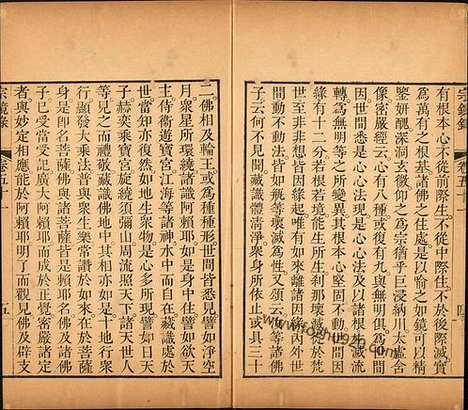 宗鏡錄
卷五十
四
有根本心不從前際生不從中際住不於後際滅實
為萬有之根基諸佛之住處是以喻之如鏡可以精
鑒妍醜深洞玄微仰之為宗猶乎巨浸納川太虛含
像密嚴經云心有八種或復有九與無明俱為世間
因世間悉是心心法現是心心法及以諸根生滅流
轉為無明等之所變異其根本心堅固不動世間因
緣有十二分若根若境能生所生剎那壞滅從於梵
世至非非想皆因緣起唯有如來離諸因緣內外世
間動不動法皆如瓶等壞滅為性又頌云汝等諸佛
子云何不見聞藏識體清淨眾身所依止或具三十
二佛相及輪王或為種種形世間皆悉見譬如淨空
月眾星所環繞諸識阿賴耶如是身中住譬如欲天
主侍衛遊寶宮江海等諸神水中而自在藏識處於
世當知亦復然如地生眾物是心多所現譬如日天
子赫奕乘寶宮旋繞須彌山周流照天下諸天世人
等見之而禮敬藏識佛地中其相亦如是十地行眾
行顯發大乘法普與眾生樂常讚於如來在於菩薩
身是即名菩薩佛與諸菩薩皆是賴耶名佛及諸佛
子已受當受記廣大阿賴耶而成於正覺密嚴諸定
者與妙定相應能於阿賴耶明了而觀見佛及辟支
宗鏡錄
卷五十
五